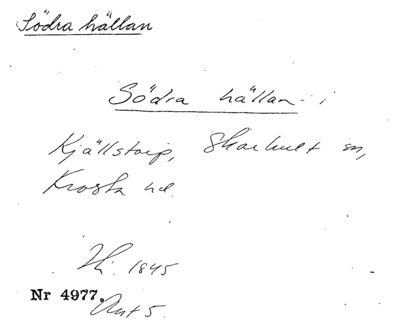 Södra hällan
Södra hällan i
Kjällstorp, Skarhult sn,
Frosta hd.
Hi. 1845
Nr 4977.
Akt 5.